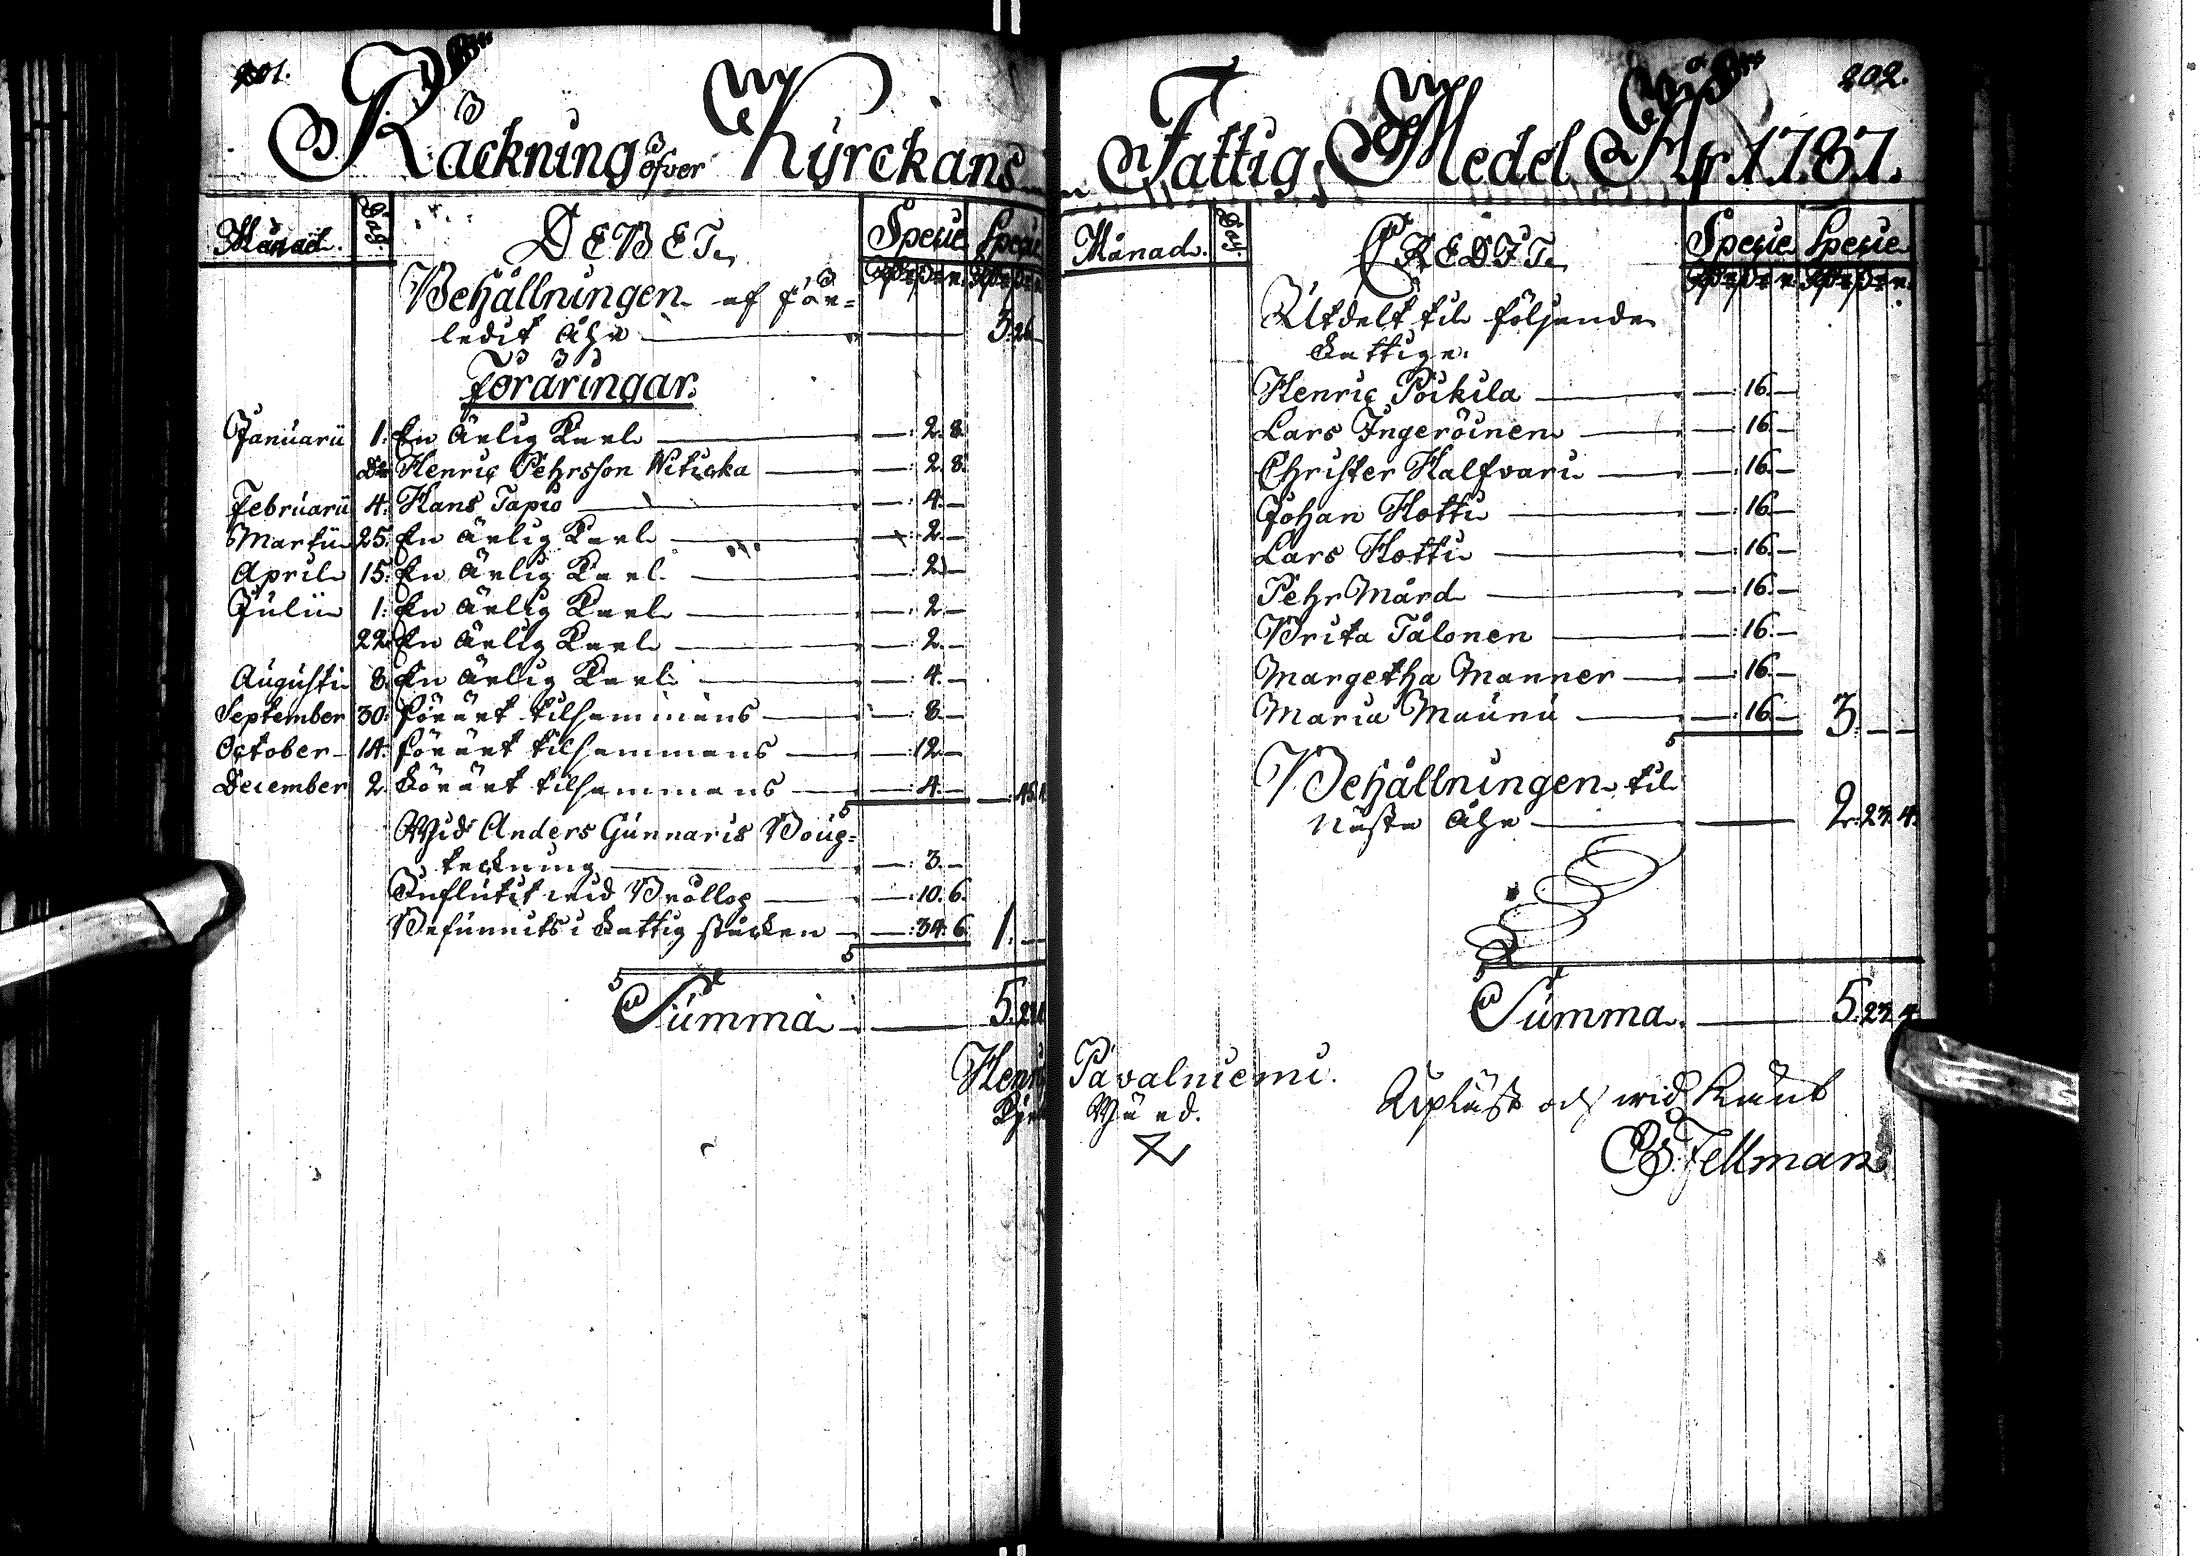 201.
Räckning öfver Kyrckans
Månad. Dag. DEBET. Specie Specie
Behållningen af för-
ledit åhr 3.
Föräringar.
Januarii 1. En Ärlig Karl —:2.8.
Do Henric Pehrsson Wituska —:2.8.
Februarii 4. Hans Tapio —:4.—
Martii 25. En Ärlig Karl —:2.—
April 15. En Ärlig Karl —:2.—
Julii 1. En Ärlig Karl —:2.—
22. En Ärlig Karl —:2.—
Augusti 8. En Ärlig Karl —:4.—
September 30. förärt tilsammans —:8.—
October 14. förärt tilsammans —:12.—
December 2. förärt tilsammans —:4.—
Wid Anders Gunnaris Boug-
teckning —:3.—
Influtit wid Bröllop —:10.6.
Befunnits i fattig stäcken —:34.6. 1.—
Summa 5.
202.
Fattig Medel År 1787.
Månad. Dag. CREDIT. Specie Specie
Utdelt til följande
fattige.
Henric Poikila —:16.—
Lars Ingeröinen —:16.—
Christer Halfvari —:16.—
Johan Hotti —:16.—
Lars Hotti —:16.—
Pehr Mård —:16.—
Brita Tålonen —:16.—
Margetha Manner —:16.—
Maria Maunu —:16.— 3.—.—
Behållningen til
nästa åhr 2.23.4.
Summa. 5.23.4.
Henri Påvalniemi.
Wärd.
Upläst och wid känt
Fellman